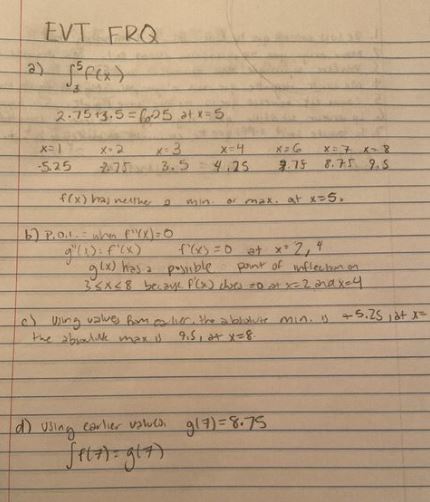 EVT FRQ
a) ∫₃⁵ f(x)
2.75+3.5 = 6.25 at x=5
x=1 x=2 x=3 x=4 x=6 x=7 x=8
-5.25 3.5 4.25 8.75 9.5
f(x) has neither a min. or max. at x=5.
b) P.O.I. = when f''(x)=0
g''(x) = f'(x) f'(x)=0 at x=2, 4
g(x) has a possible point of inflection on
3≤x≤8 because f'(x) does =0 at x=2 and x=4
c) Using values from earlier, the absolute min. is -5.25, at x=
the absolute max is 9.5, at x=8.
d) Using earlier values, g(7)=8.75
∫f(7)=g(7)